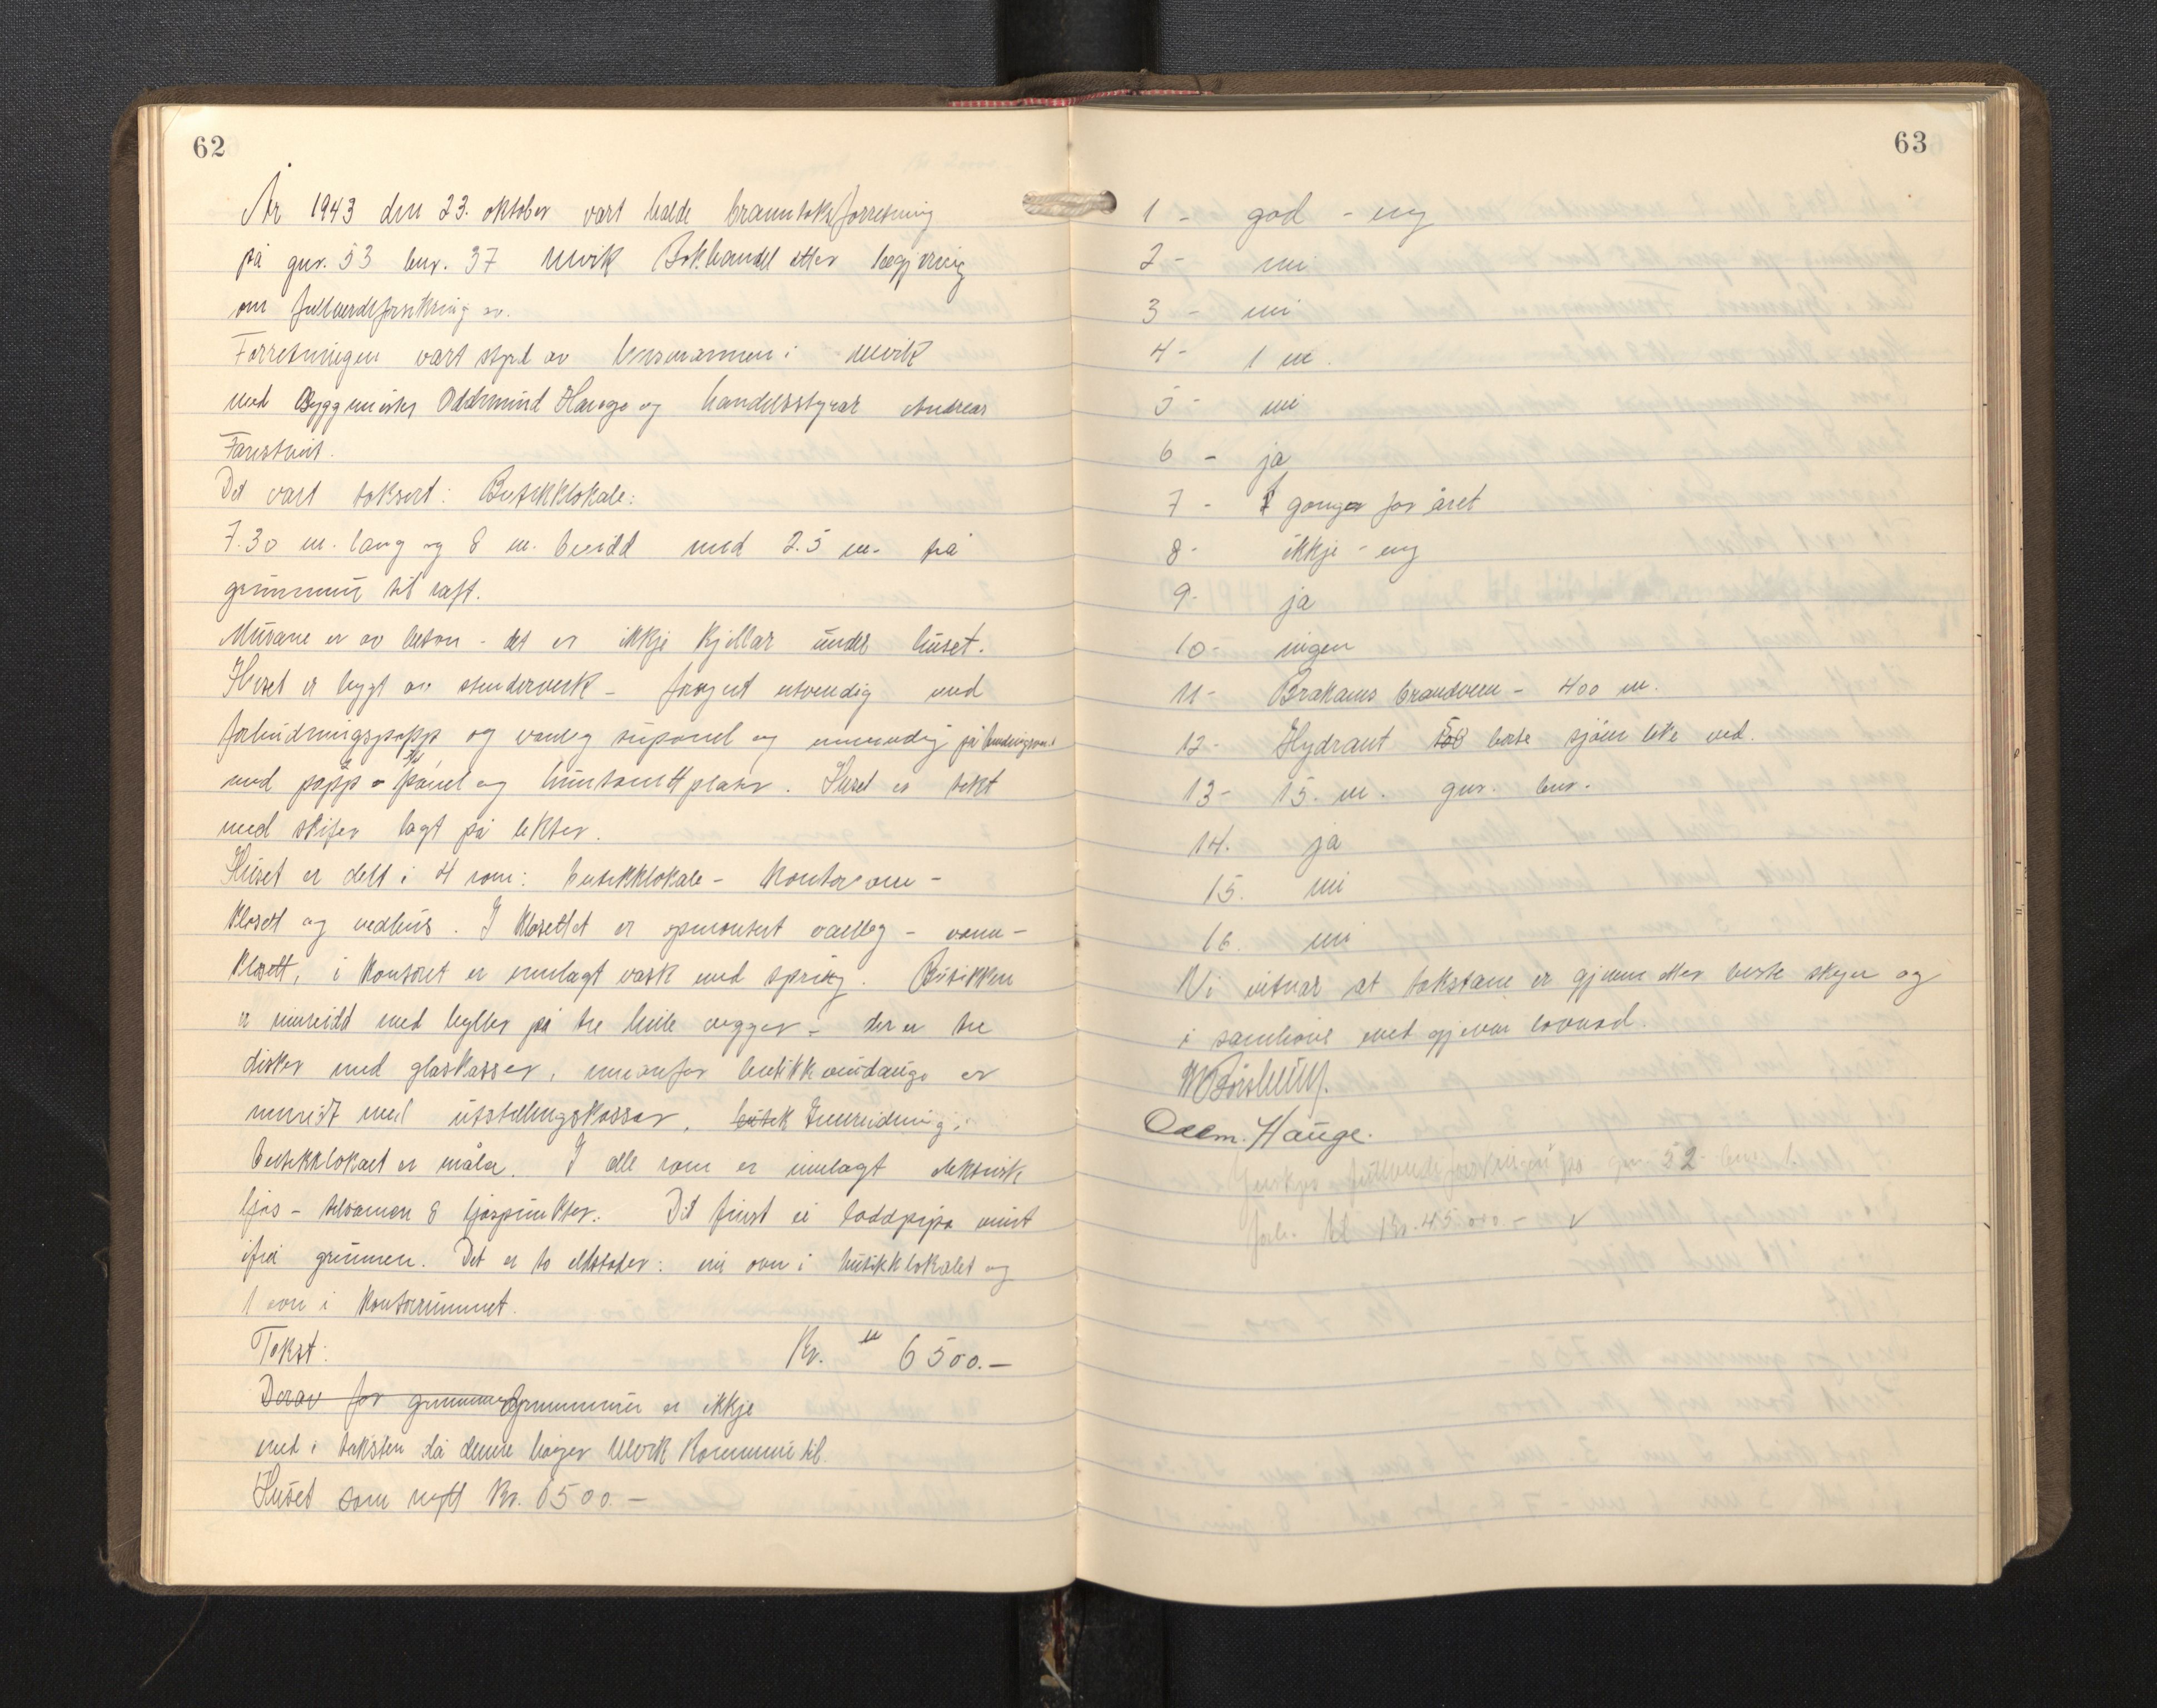 62
År 1943 den 23. oktober vart halde branntakstforretning
på gnr. 53 bnr. 37 Ulvik Bokhandel etter begjering
om fullverdiforsikring av.
Forretningen vart styrt av lensmannen i Ulvik
med byggmeister Oddmund Hauge og handelsstyrar Andreas
Det vart taksert: Butikklokale:
7.30 m. lang og 8 m. breidd med 2.5 m. frå
grunnmur til raft.
Murane er av betong - det er ikkje kjellar under huset.
Huset er bygt av stenderverk - utvendig med
forhudningspapp og vanleg supanel og innvendig på
med papp - panel og huntonittplater. Huset er tekt
med skifer lagt på lekter.
Huset er delt i 4 rom: butikklokale - kontorrom -
klosett og vedhus. I klosettet er opmontert vanleg - vann-
klosett, i kontoret er innlagt vask med spring. Butikken
er innreidd med hyller på tre heile vegger - der er tre
disker med glaskasser, innanfor butikkvindauga er
innreidt med utstellingskasser, butik Innreidning i
butikklokalet er måla. I alle rom er innlagt elektrisk
ljos - tilsaman 8 ljospunkter. Det finst ei loddpipa murt
ifrå grunnen. Det er to eldstader: ein omn i butikklokalet og
1 omn i kontorrummet.
Takst: Kr. 6500.-
Derav for grunnmur Grunnmuren er ikkje
med i taksten då denne høyrer Ulvik Kommune til.
Huset som nytt Kr. 6500.-
63
1 - god - eng
2 - nei
3 - nei
4 - 1 m.
5 - nei
6 - ja
7 - gonger for året
8 - ikkje - eng
9 - ja
10 - ingen
11 - Brakanes brandvern - 400 m.
12 - Hydrant borte sjøen like ved.
13 - 15. m. gnr. bnr.
14. ja
15. nei
16. nei
Vi vitnar at takstane er gjevne etter beste skyn og
i samhøve med gjevne lovnad.
Oddm. Hauge.
fullverdiforsikringen på gnr 52 bnr 1.
Kr. 45.000.-